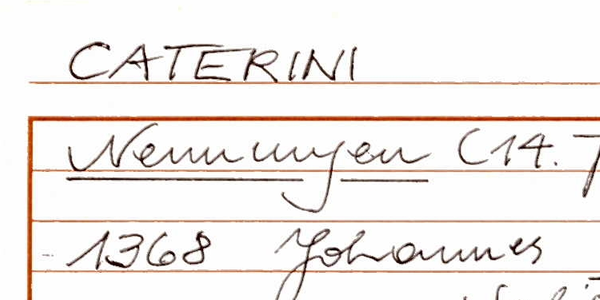 CATERINI
Nenningen (14. J
1368 Johannes